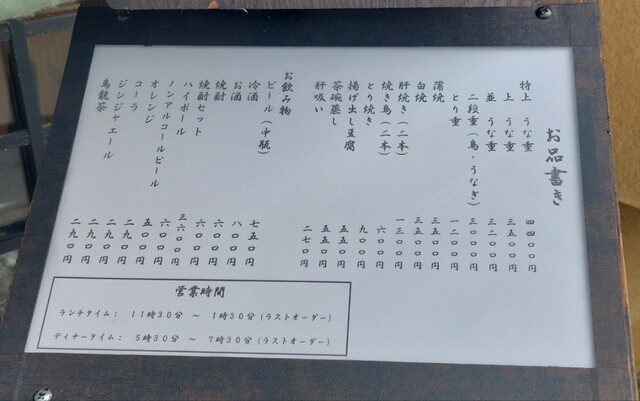 お品書き
特上 うな重 四四〇〇円
上 うな重 三五〇〇円
並 うな重 三二〇〇円
二段重（鳥・うなぎ） 三〇〇〇円
とり重 一二〇〇円
蒲焼 三五〇〇円
白焼 三五〇〇円
肝焼き（二本） 一三〇〇円
焼き鳥（二本） 六〇〇円
とり焼き 九〇〇円
揚げ出し豆腐 五五〇円
茶碗蒸し 五五〇円
肝吸い 二七〇円
お飲み物
ビール（中瓶） 七五〇円
冷酒 八〇〇円
お酒 六〇〇円
焼酎 六〇〇円
焼酎セット 三六〇〇円
ハイボール 六〇〇円
ノンアルコールビール 五〇〇円
オレンジ 二九〇円
コーラ 二九〇円
ジンジャエール 二九〇円
烏龍茶 二九〇円
営業時間
ランチタイム： 11時30分 ～ 1時30分(ラストオーダー)
ディナータイム： 5時30分 ～ 7時30分(ラストオーダー)